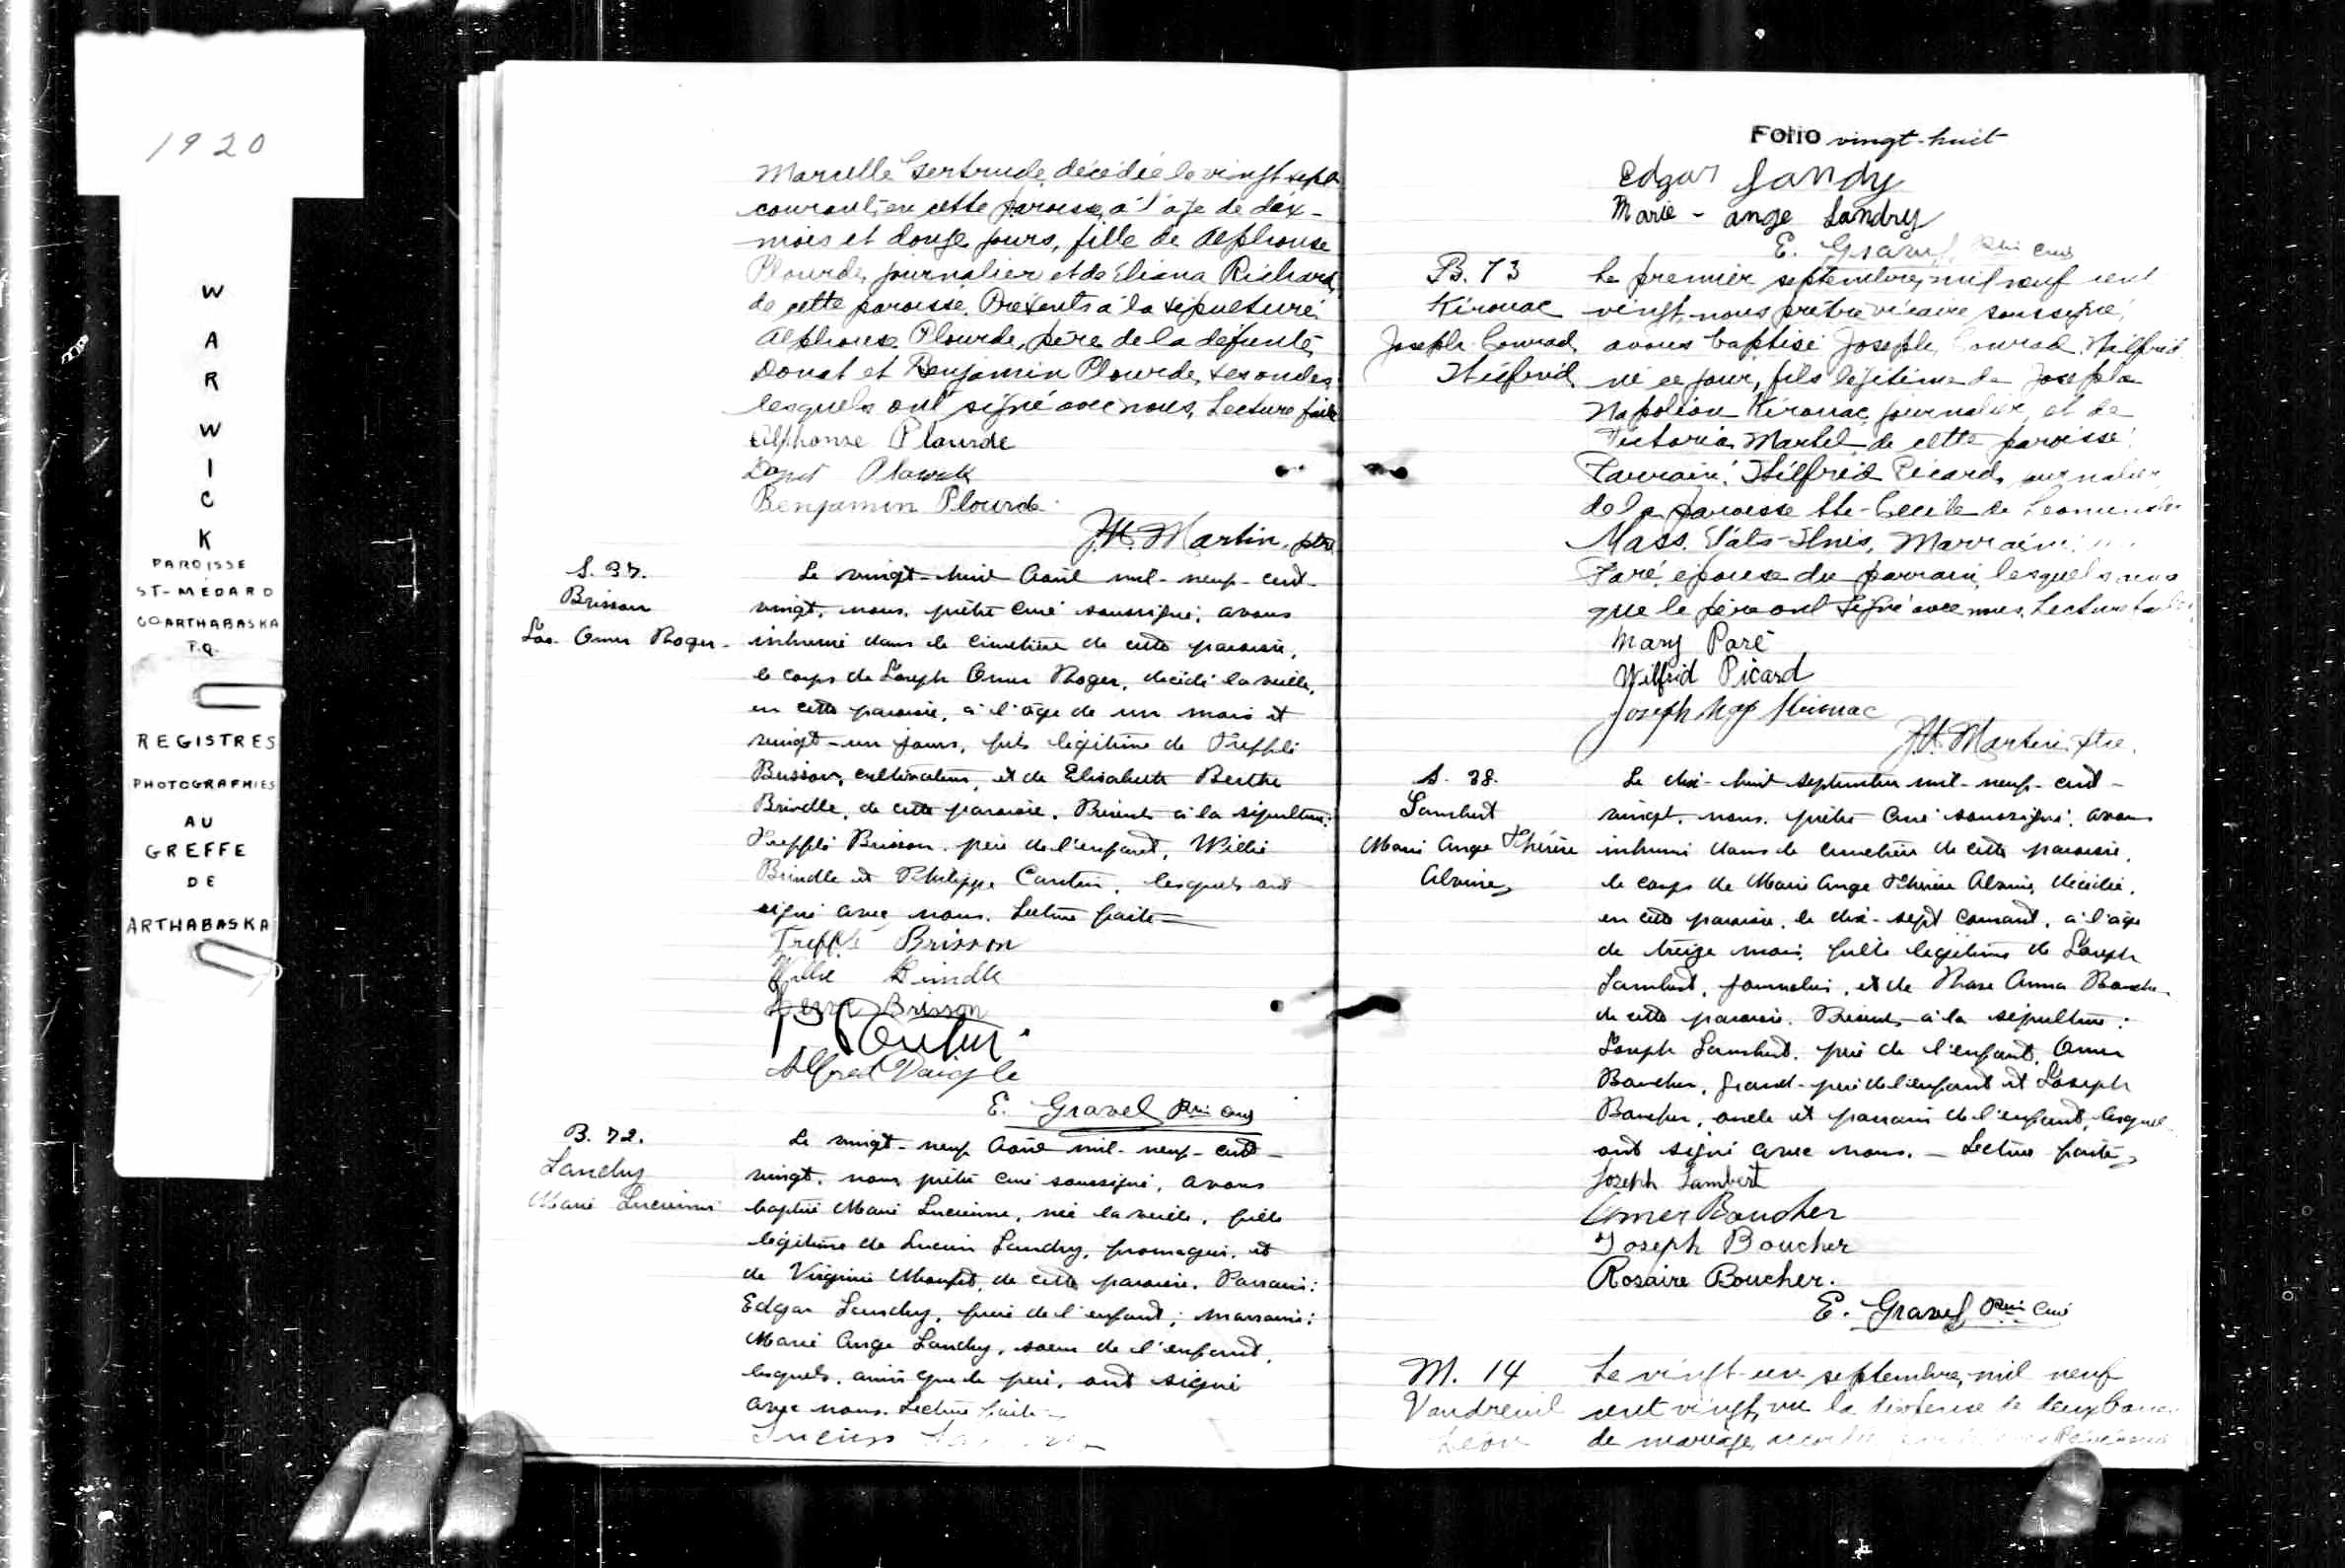 1920
W
A
R
W
I
C
K
PAROISSE
ST-MÉDARD
CO ARTHABASKA
P.Q.
REGISTRES
PHOTOGRAPHIES
AU
GREFFE
DE
ARTHABASKA
Marcelle Gertrude, décédée le vingt sept
courant, en cette paroisse, à l'âge de dix-
mois et douze jours, fille de Alphonse
Plourde, journalier et de Eliana Richard,
de cette paroisse. Présents à la sépulture:
Alphonse Plourde, père de la défunte,
Donat et Benjamin Plourde, ses oncles
lesquels ont signé avec nous, Lecture faite
Alphonse Plourde
Donat Plourde
Benjamin Plourde
Martin, ptre
S. 37.
Brisson
Jos. Omer Roger.
Le vingt-huit Août mil-neuf-cent-
vingt, nous, prêtre curé soussigné, avons
inhumé dans le cimetière de cette paroisse,
le corps de Joseph Omer Roger, décédé la veille,
en cette paroisse, à l'âge de un mois et
vingt-un jours, fils légitime de Trefflé
Brisson, cultivateur, et de Elisabeth Berthe
Brindle, de cette paroisse. Présents à la sépulture:
Trefflé Brisson, père de l'enfant, Willie
Brindle et Philippe Cantin, lesquels ont
signé avec nous. Lecture faite
Trefflé Brisson
Willie Brindle
Brisson
Alfred Daigle
E. Gravel Ptre curé
B. 72.
Landry
Marie Lucienne
Le vingt-neuf Août mil-neuf-cent-
vingt, nous prêtre curé soussigné, avons
baptisé Marie Lucienne, née la veille, fille
légitime de Lucien Landry, fromager, et
de Virginie, de cette paroisse. Parrain:
Edgar Landry, frère de l'enfant; marraine:
Marie Ange Landry, soeur de l'enfant,
lesquels, ainsi que le père, ont signé
avec nous. Lecture faite
Lucien
Folio vingt-huit
Edgar Landry
Marie-ange Landry
E. Gravel Ptre curé
B. 73
Kérouac
Joseph Conrad
Wilfrid
Le premier septembre, mil neuf cent
vingt, nous prêtre vicaire soussigné,
avons baptisé Joseph Conrad Wilfrid
né ce jour, fils légitime de Joseph
Napoléon Kérouac, journalier et de
Victoria Martel, de cette paroisse.
Parrain: Wilfrid Picard, journalier
de la paroisse Ste-Cécile de Leominster
Mass. Etats-Unis, Marraine:
Paré, épouse du parrain, lesquels ainsi
que le père ont signé avec nous. Lecture faite
Mary Paré
Wilfrid Picard
Joseph Nap Kérouac
Martin, ptre.
S. 38.
Lambert
Marie Ange Thérèse
Alvine
Le dix-huit septembre mil-neuf-cent-
vingt, nous, prêtre curé soussigné, avons
inhumé dans le cimetière de cette paroisse,
le corps de Marie Ange Thérèse Alvine, décédée,
en cette paroisse, le dix-sept courant, à l'âge
de treize mois, fille légitime de Joseph
Lambert, journalier, et de Rose Anna Boucher
de cette paroisse. Présents à la sépulture:
Joseph Lambert, père de l'enfant, Omer
Boucher, grand-père de l'enfant et Joseph
Boucher, oncle et parrain de l'enfant, lesquels
ont signé avec nous. — Lecture faite
Joseph Lambert
Omer Boucher
Joseph Boucher
Rosaire Boucher.
E. Gravel Ptre Curé
M. 14
Vaudreuil
Léon
Le vingt-un septembre, mil neuf
cent vingt, vu la dispense de deux bans
de mariage accordée